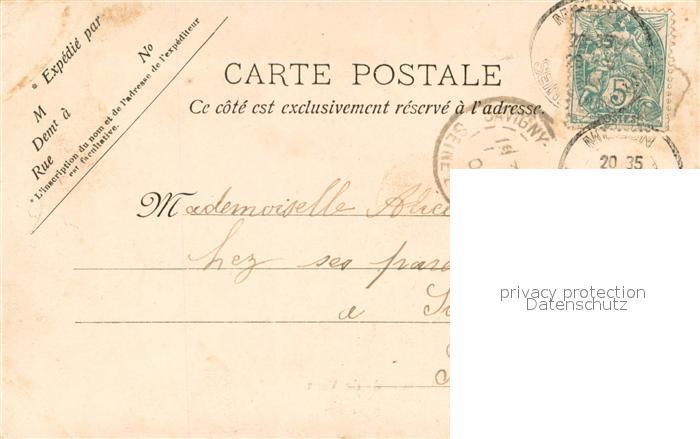 * Expédié par
No
M
Demt à
Rue
* L'inscription du nom et de l'adresse de l'expéditeur
est facultative.
CARTE POSTALE
Ce côté est exclusivement réservé à l'adresse.
5
POSTES
SAVIGNY
SEINE
20 35
20 35
Mademoiselle Alice
chez ses par
à
privacy protection
Datenschutz